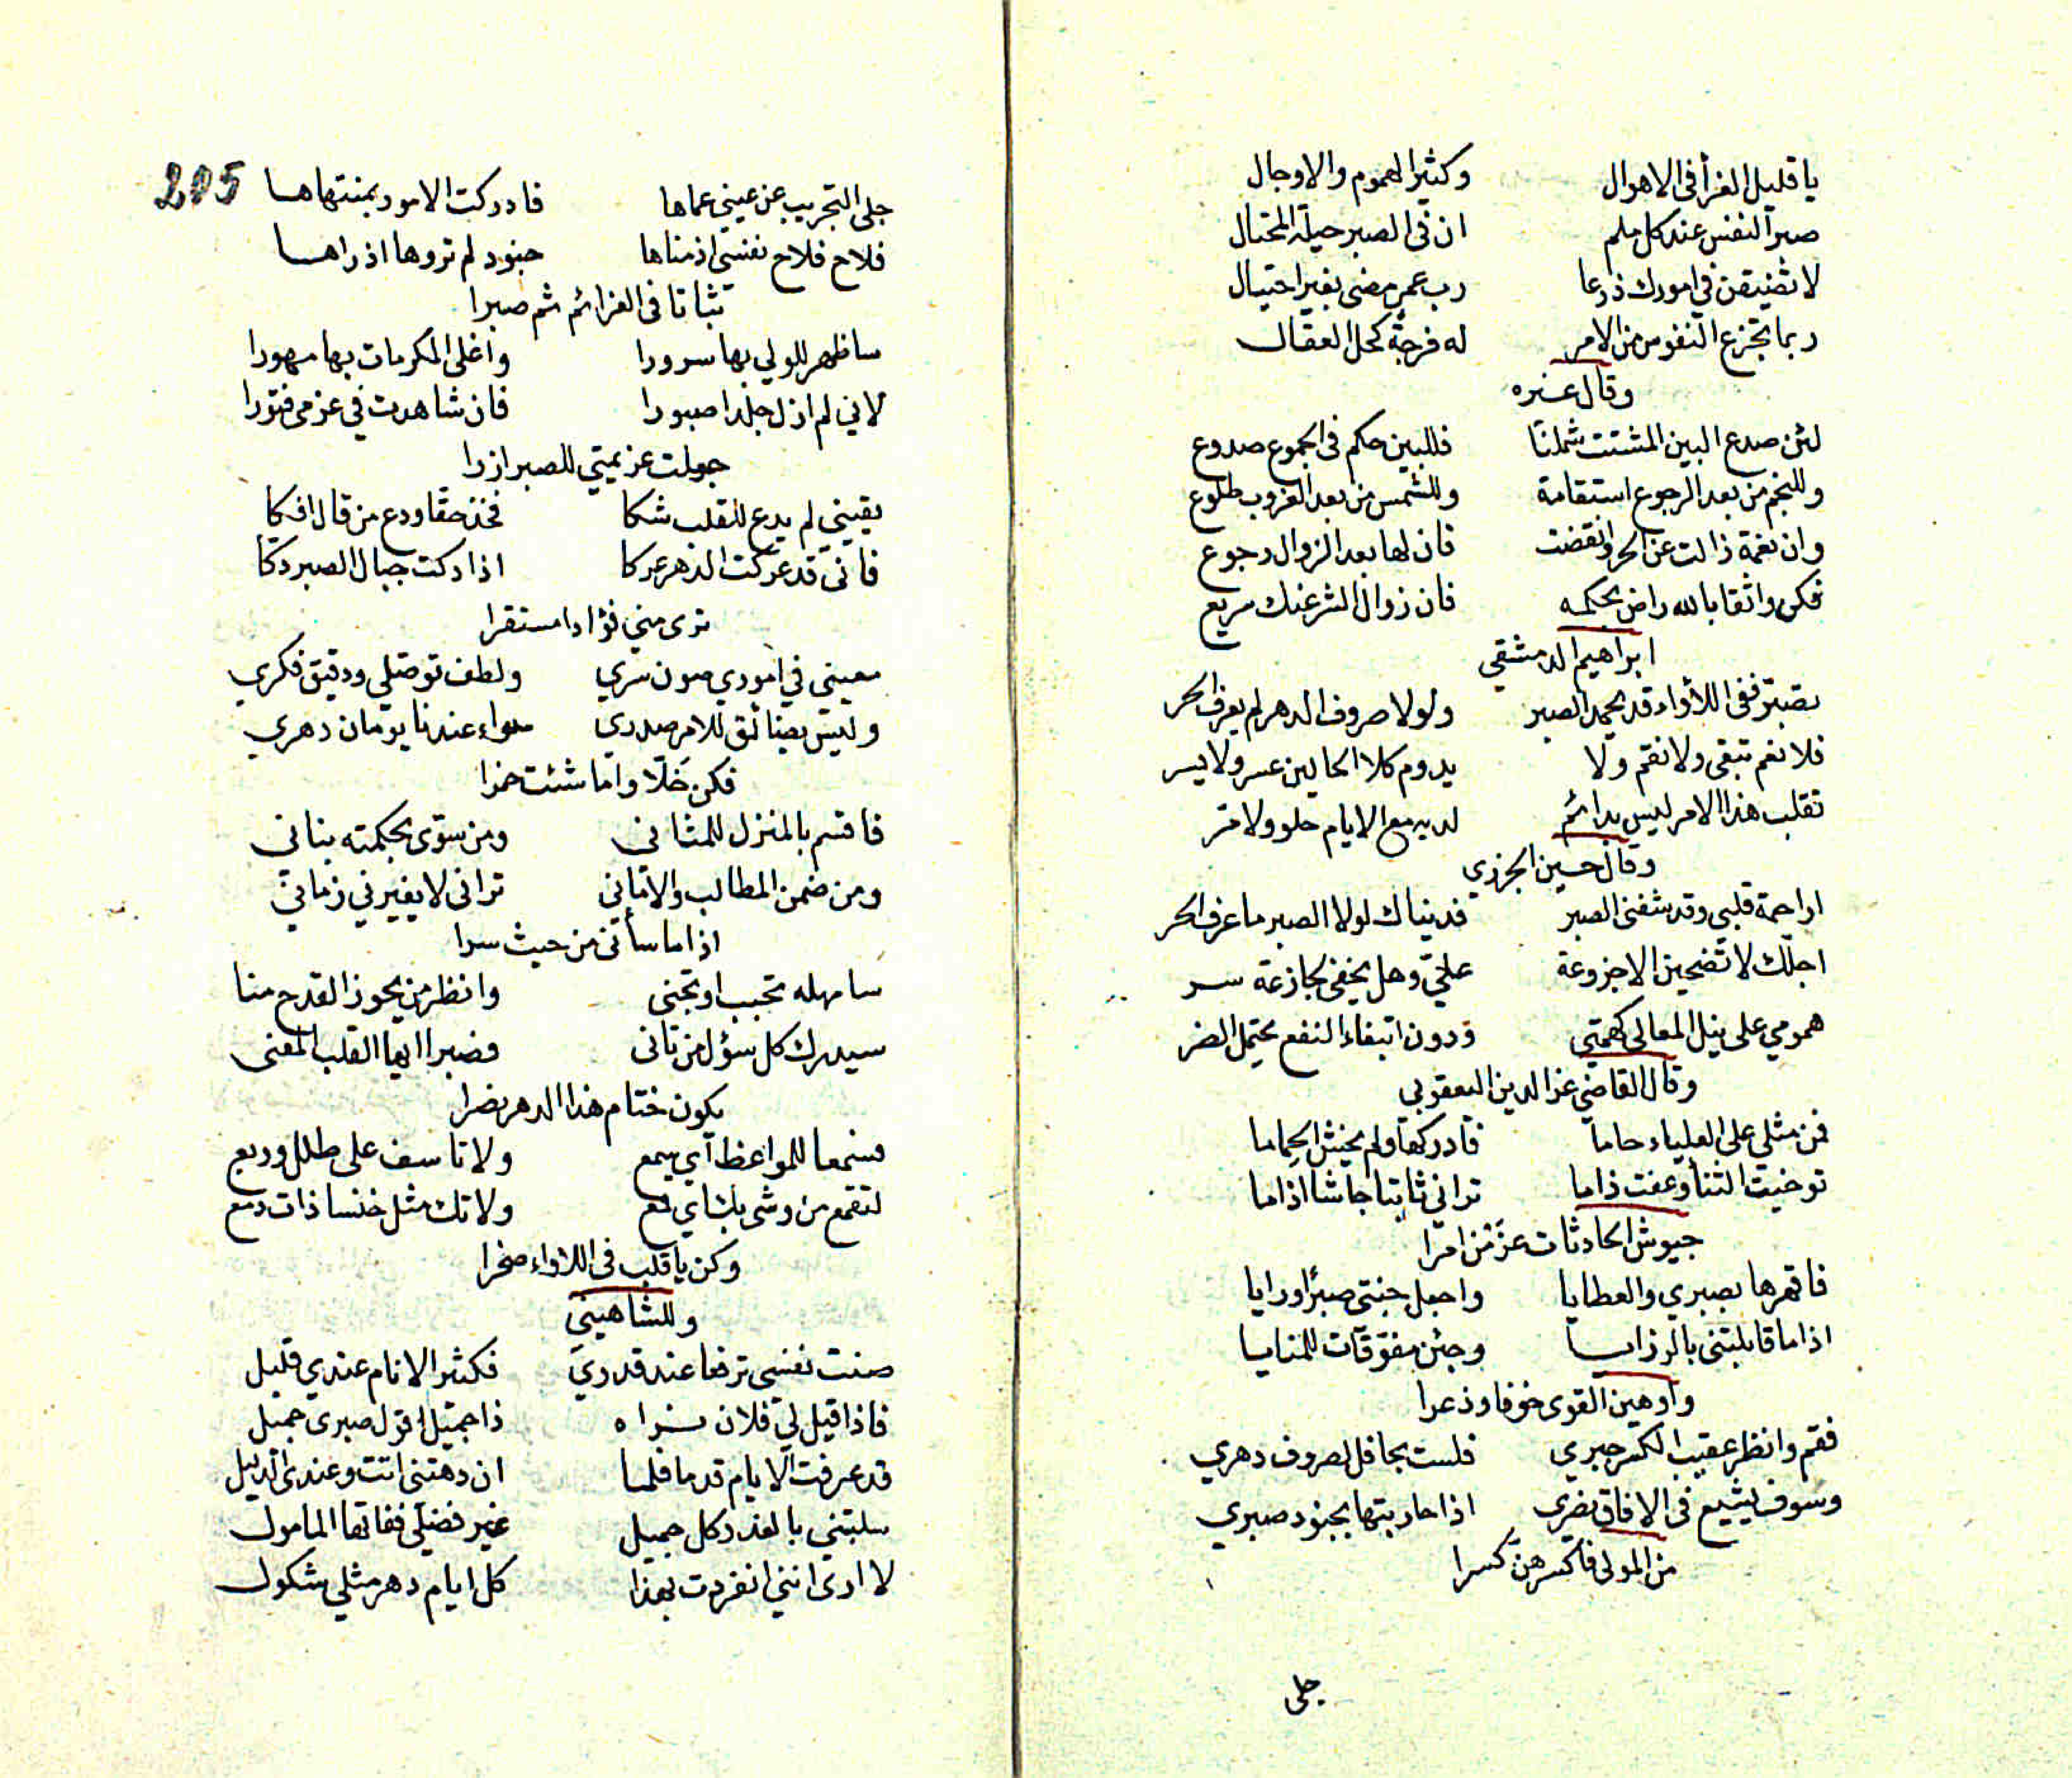 يا قليل العزأ في الاهوال وكثير الهموم والاوجال
صبر النفس عند كل ملم ان في الصبر حيلة المحتال
لا تضيقن في امورك ذرعا رب عمر مضى بغير احتيال
ربما تجزع النفوس من الامر له فرجة كحل العقال
وقال غيره
لئن صدع البين المشتت شملنا فللبين حكم في الجموع صدوع
وللنجم من بعد الرجوع استقامة وللشمس من بعد الغروب طلوع
وان نعمة زالت عن الحر وانقضت فان لها بعد الزوال رجوع
فكن واثقا بالله راض بحكمه فان زوال الشر عنك سريع
ابراهيم الدمشقي
تصبر ففي اللأواء قد يحمد الصبر ولولا صروف الدهر لم يعرف الحر
فلا نعم تبقى ولا نقم ولا يدوم كلا الحالين عسر ولا يسر
تقلب هذا الامر ليس بدائم لديه مع الايام حلو ولا مر
وقال حسين الجزري
اراحمة قلبي وقد شفني الصبر فديناك لولا الصبر ما عرف الحر
اجلك لا تضحين الا جزوعة علي وهل يخفى لجازعة سر
همومي على نيل المعالي كهمتي ودون ابتغاء النفع يحتمل الضر
وقال القاضي عز الدين اليعقوبي
فمن مثلي على العلياء حاما فادركها ولم يخش الحماما
توخيت الثنأ وعفت ذاما تراني ثابتا جاشا اذا ما
جيوش الحادثات عزمن امرا
فاقهرها بصبري والعطايا واجعل جنتي صبرا ورايا
اذا ما قابلتني بالرزايا وجئن مفوقات للمنايا
واوهين القوى خوفا وذعرا
فقم وانظر عقيب الكسر جبري فلست بجافل لصروف دهري
وسوف يشيع في الافاق نصري اذا حاربتها بجنود صبري
من المولى فاكسرهن كسرا
جلى
205
جلى التجريب عن عيني عماها فادركت الامور بمنتهاها
فلاح فلاح نفسي اذ مناها جنود لم تروها اذ راها
ثباتا في العزائم ثم صبرا
ساظهر للولي بها سرورا واغلى المكرمات بها مهورا
لاني لم ازل جلدا صبورا فان شاهدت في عزمي فتورا
جعلت عزيمتي للصبر ازرا
يقيني لم يدع للقلب شكا فخذ حقا ودع من قال افكا
فاني قد عركت الدهر عركا اذا دكت جبال الصبر دكا
ترى مني فؤادا مستقرا
معيني في اموري صون سري ولطف توصلي ودقيق فكري
وليس بضائق للامر صدري سواء عندنا يومان دهري
فكن خلا واما شئت خمرا
فاقسم بالمنزل للمثاني ومن سوى بحكمته بناني
ومن ضمن المطالب والاماني تراني لا يغيرني زماني
اذا ما سأني من حيث سرا
سامهله تجبب او تجنى وانظر من يحوز القدح منا
سيدرك كل سؤل من تانى فصبرا ايها القلب المعنى
يكون ختام هذا الدهر نصرا
فسمعا للمواعظ اي سمع ولا تاسف على طلل وربع
لتقمع من وشى بك اي قمع ولا تك مثل خنسا ذات دمع
وكن يا قلب في اللاواء صخرا
وللشاهيني
صنت نفسي ترفعا عند قدري فكثير الانام عندي قليل
فاذا قيل لي فلان نراه ذا جميل اقول صبري جميل
قد عرفت الايام قدما فلما ان دهتني اتت وعندي الدليل
سلبتني بالغدر كل جميل غير فضلي ففاتها المامول
لا ارى انني انفردت بهذا كل ايام دهر مثلي شكول